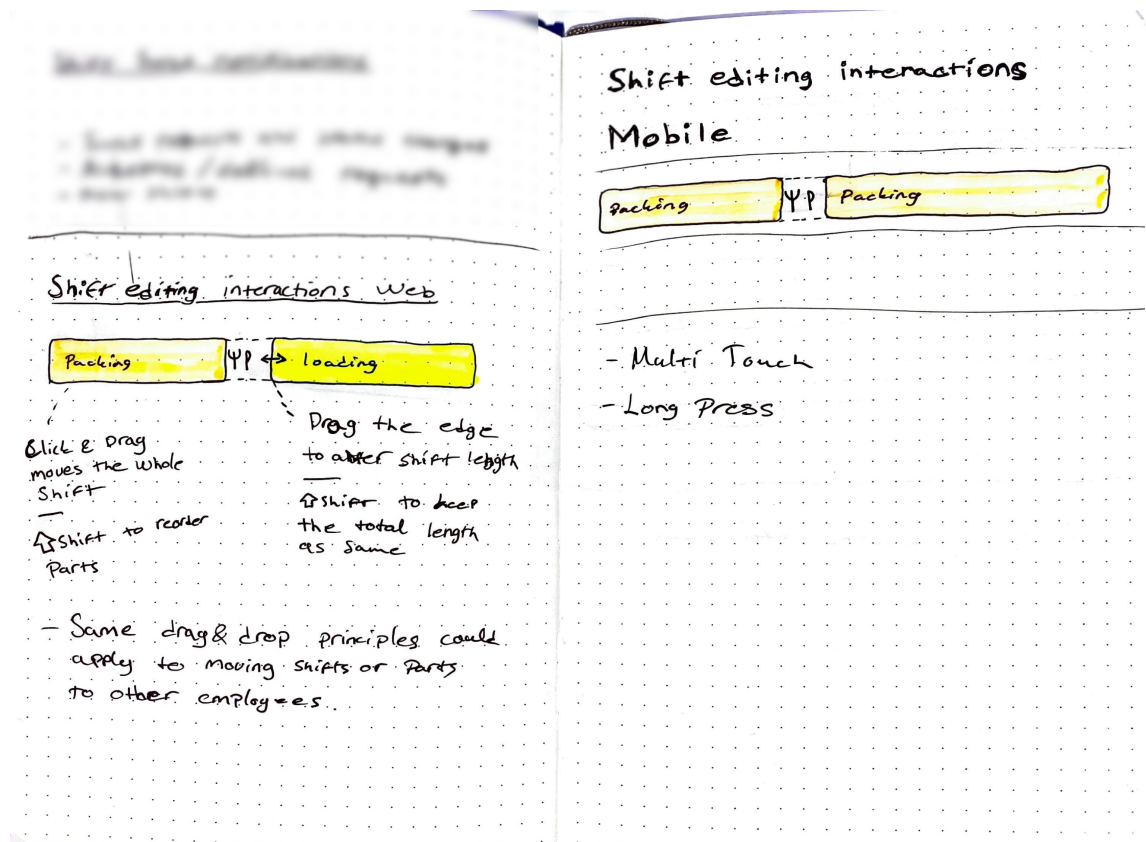 Shift editing interactions Web
Packing ΨP ↔ loading
Click & Drag
moves the whole
Shift
—
⇧Shift to reorder
Parts
Drag the edge
to alter shift length
—
⇧Shift to keep
the total length
as same
- Same drag & drop principles could
apply to moving shifts or Parts
to other employees.
Shift editing interactions
Mobile
Packing ΨP Packing
- Multi Touch
- Long Press